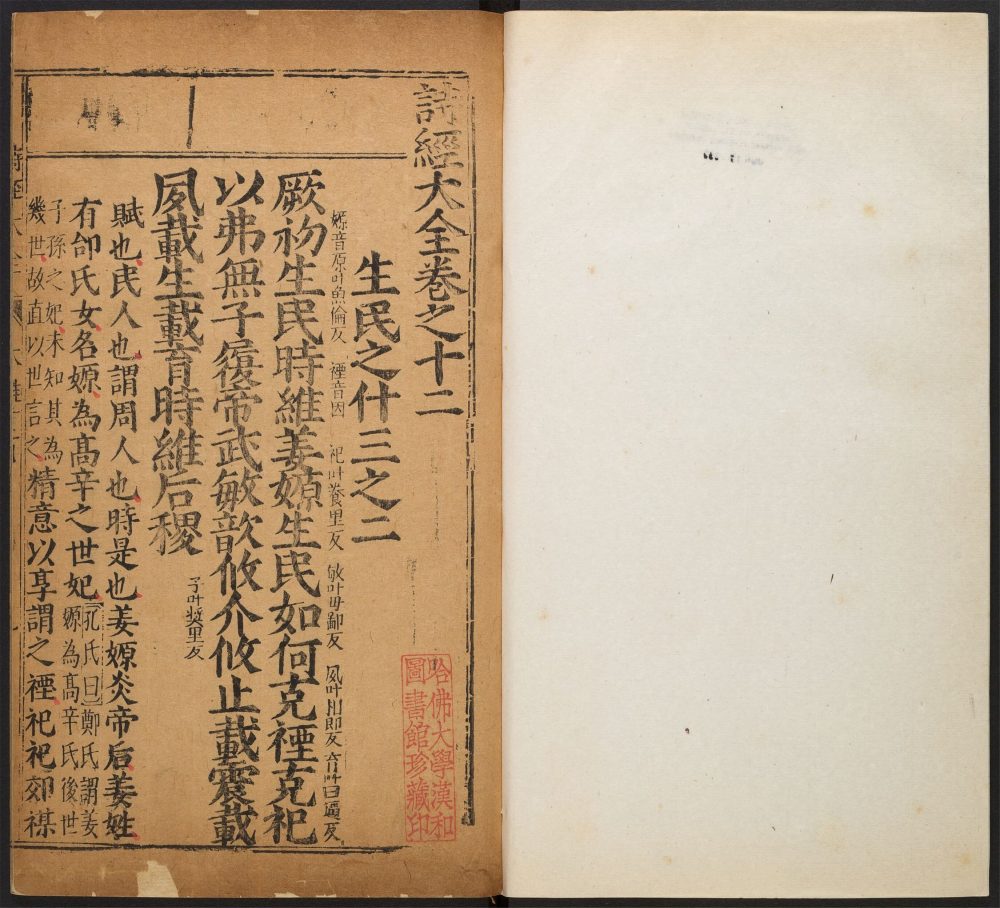 詩經大全卷之十二
生民之什三之二
厥初生民時維姜嫄生民如何克禋克祀
嫄音原叶魚倫反 禋音因 祀叶養里反 敏叶母鄙反 夙叶相即反 育叶曰逼反
以弗無子履帝武敏歆攸介攸止載震載
子叶獎里反
夙載生載育時維后稷
賦也民人也謂周人也時是也姜嫄炎帝后姜姓
有邰氏女名嫄為高辛之世妃
孔氏曰鄭氏謂姜
嫄為高辛氏後世
子孫之妃未知其為
幾世故直以世言之
精意以享謂之禋祀祀郊禖
詩經大全
哈佛大學漢和
圖書館珍藏印